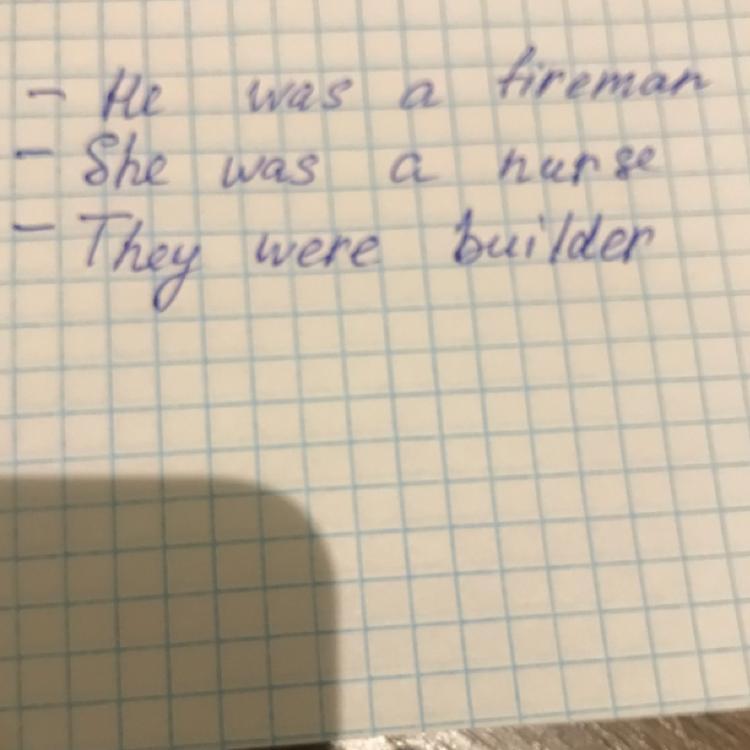 - He was a fireman
- She was a nurse
- They were builder